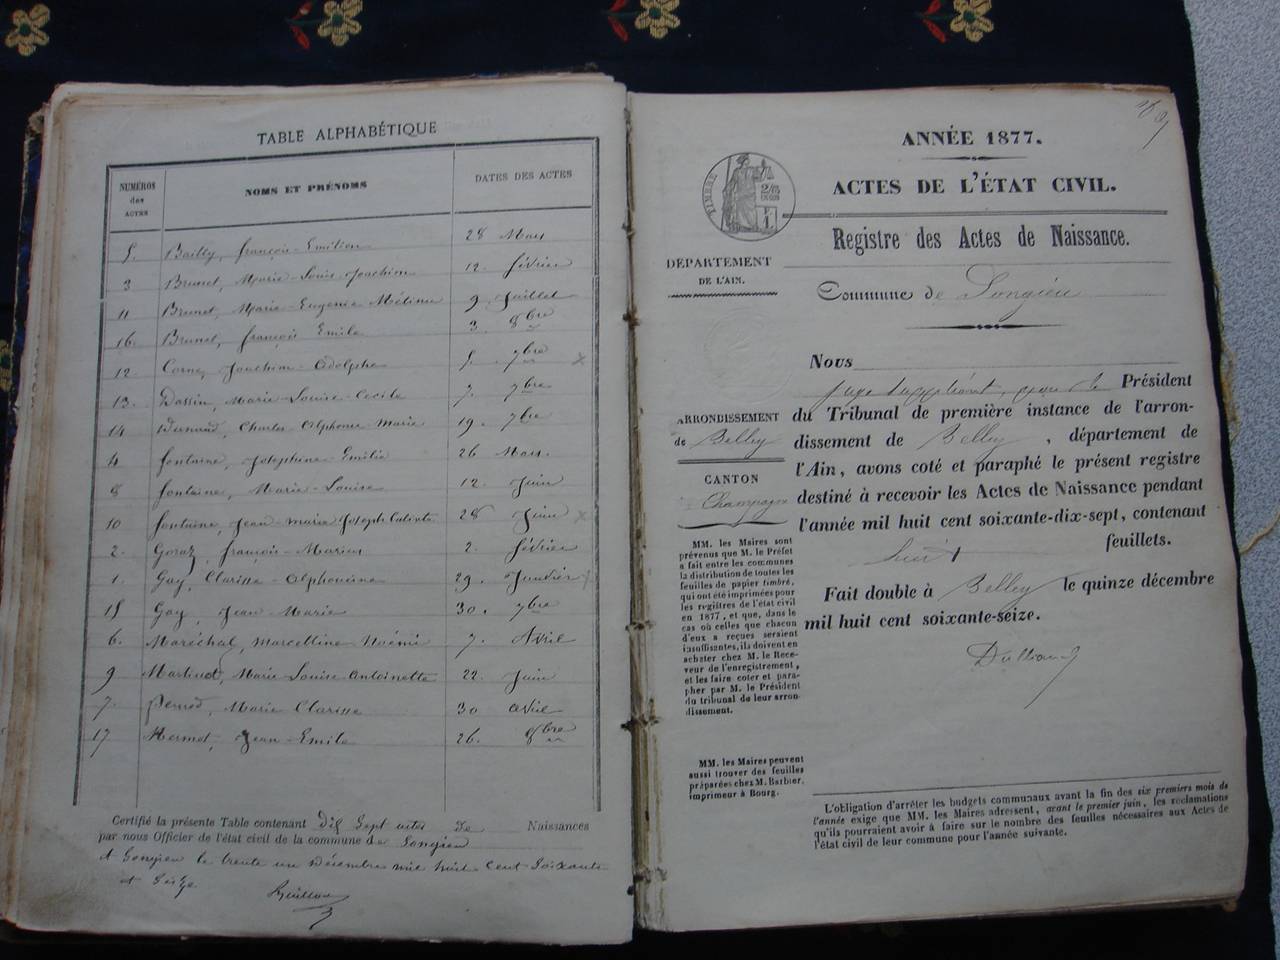 TABLE ALPHABÉTIQUE
NUMÉROS des ACTES NOMS ET PRÉNOMS DATES DES ACTES
5. Bailly, françois-Emilien 28 Mars
3 Brunet, Marie-Louis-Joachim 12. février
11 Brunet, Marie-Eugenie 9. Juillet
16. Brunet, françois Emile 3. 8bre
12 Corne, Joachim-Adolphe 5. 7bre
13. Dassin, Marie-Louise-Cecile 7. 7bre
14 Charles Alphonse Marie 19. 7bre
4 fontaine, Josephine-Emilie 26 Mars.
8 fontaine, Marie-Louise 12. Juin
10 fontaine, Jean-marie Joseph 28 Juin
2. Goraz, françois-Marius 2. février
1. Gay, Clarisse-Alphonsine 29. Janvier
15 Gay, Jean-Marie 30. 7bre
6. Maréchal, Marcelline Noémie 7. Avril
9 Martinod, Marie-Louise-Antoinette 22. Juin
7. Perret, Marie Clarisse 30 avril
17 Mermet, Jean-Emile 26. 8bre
Certifié la présente Table contenant dix Sept actes de Naissances
par nous Officier de l'état civil de la commune de Songieu
A Songieu le trente un Décembre mil huit cent Soixante
et Seize
Guillon
ANNÉE 1877.
ACTES DE L'ÉTAT CIVIL.
Registre des Actes de Naissance.
TIMBRE
DÉPARTEMENT
DE L'AIN.
Commune de Songieu
ARRONDISSEMENT
de Belley
CANTON
Champagne
MM. les Maires sont
prévenus que M. le Préfet
a fait entre les communes
la distribution de toutes les
feuilles de papier timbré,
qui ont été imprimées pour
les registres de l'état civil
en 1877, et que, dans le
cas où celles que chacun
d'eux a reçues seraient
insuffisantes, ils doivent en
acheter chez M. le Rece-
veur de l'enregistrement,
et les faire coter et para-
pher par M. le Président
du tribunal de leur arron-
dissement.
MM. les Maires peuvent
aussi trouver des feuilles
préparées chez M. Barbier,
imprimeur à Bourg.
Nous
Juge suppléant, pour le Président
du Tribunal de première instance de l'arron-
dissement de Belley, département de
l'Ain, avons coté et paraphé le présent registre
destiné à recevoir les Actes de Naissance pendant
l'année mil huit cent soixante-dix-sept, contenant
huit feuillets.
Fait double à Belley le quinze décembre
mil huit cent soixante-seize.
L'obligation d'arrêter les budgets communaux avant la fin des six premiers mois de
l'année exige que MM. les Maires adressent, avant le premier juin, les réclamations
qu'ils pourraient avoir à faire sur le nombre des feuilles nécessaires aux Actes de
l'état civil de leur commune pour l'année suivante.